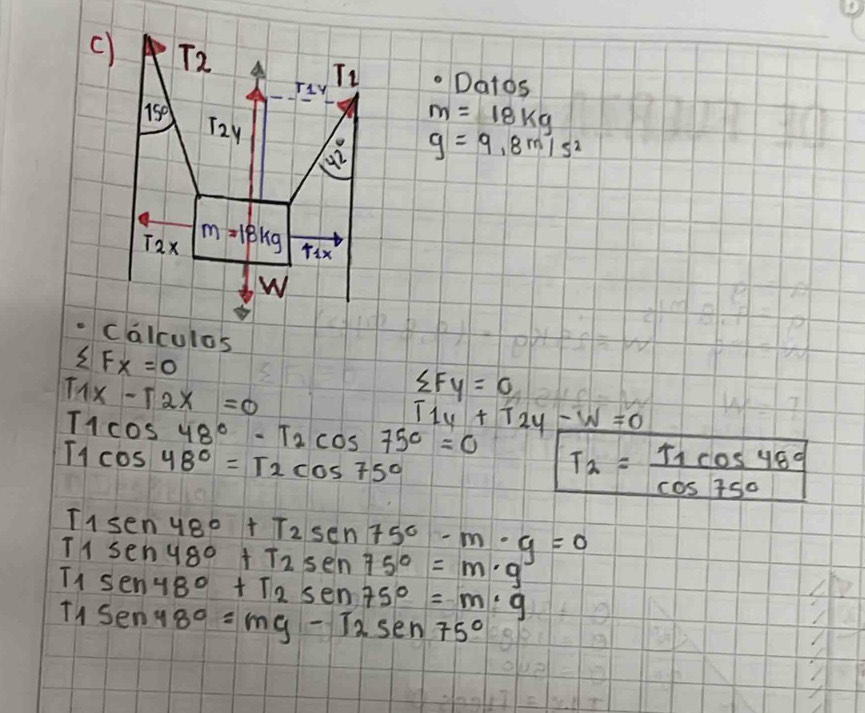 c)
T2
T1
T1y
15°
T2y
42°
T2x
m=18kg
T1x
W
• Datos
m = 18 Kg
g = 9.8m/s²
• Cálculos
ΣFx = 0
T1x - T2x = 0
T1 cos 48° - T2 cos 75° = 0
T1 cos 48° = T2 cos 75°
ΣFy = 0
T1y + T2y - W = 0
T2 = T1 cos 48° / cos 75°
T1 sen 48° + T2 sen 75° - m · g = 0
T1 sen 48° + T2 sen 75° = m · g
T1 sen 48° + T2 sen 75° = m · g
T1 Sen 48° = mg - T2 sen 75°